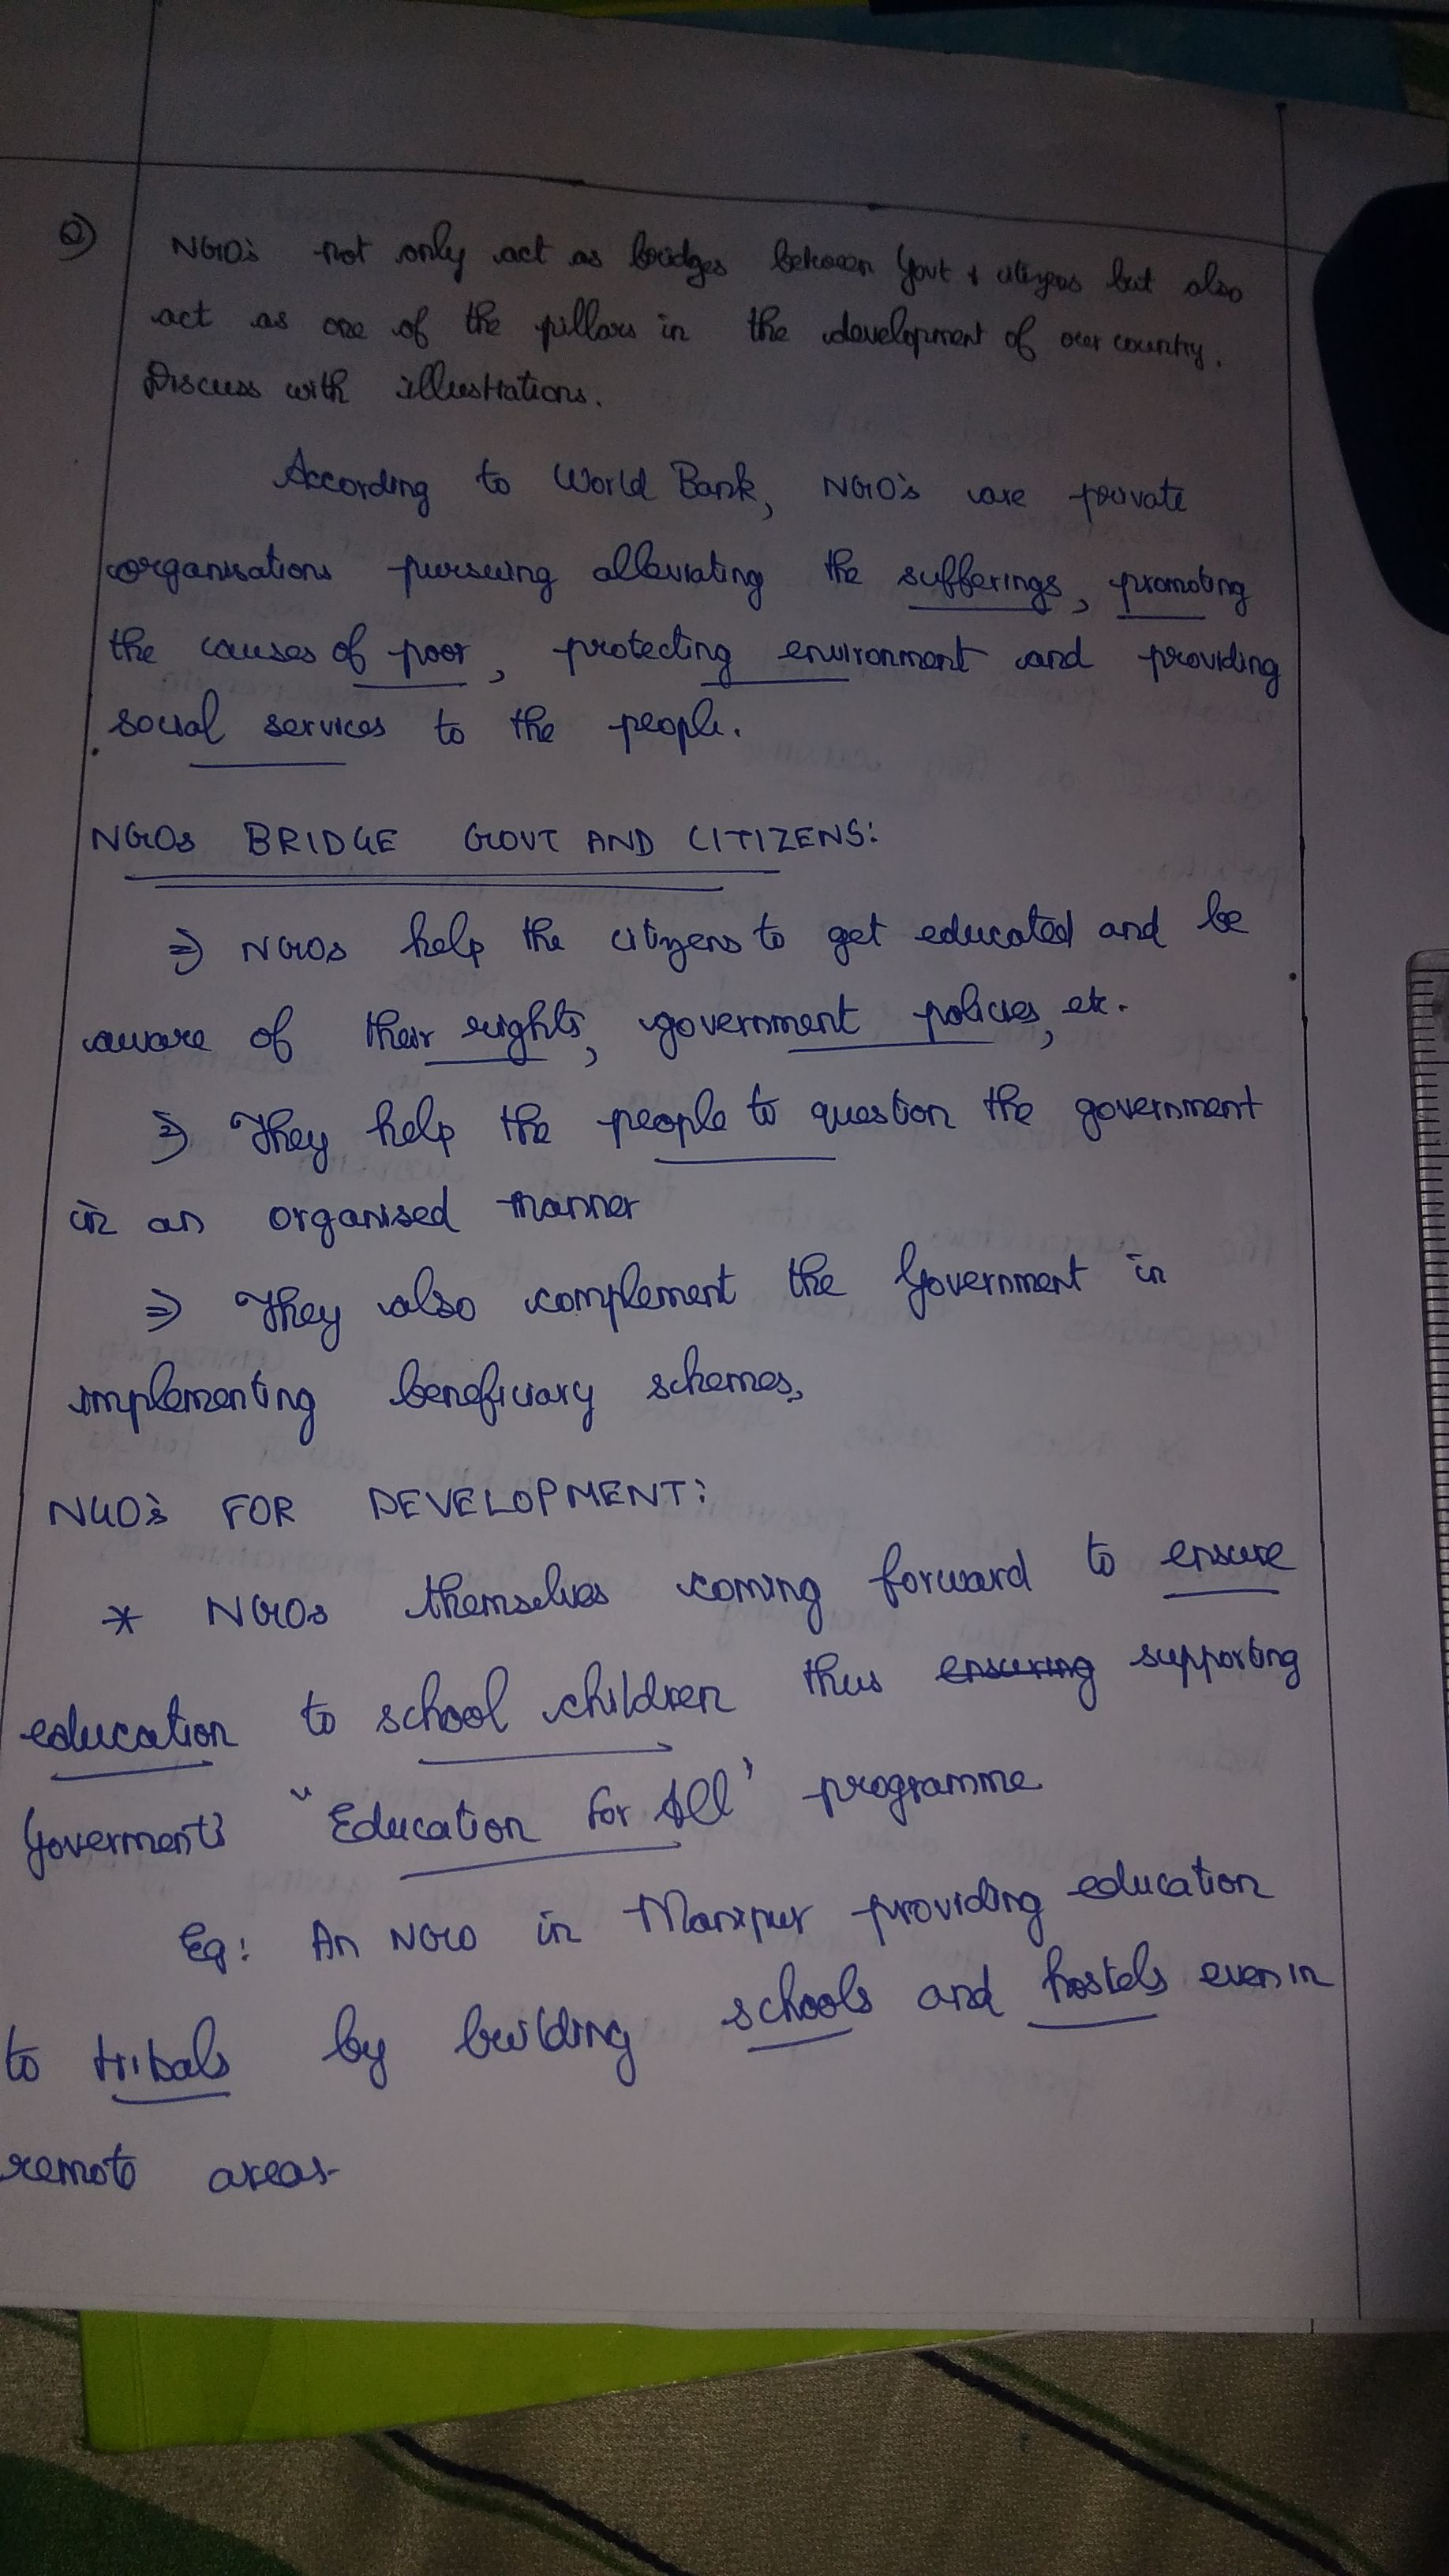 Q)
NGO's not only act as bridges between Govt & citizens but also
act as one of the pillars in the development of our country.
Discuss with illustrations.
According to World Bank, NGO's are private
organisations pursuing alleviating the sufferings, promoting
the causes of poor, protecting environment and providing
social services to the people.
NGOs BRIDGE GOVT AND CITIZENS:
⇒ NGOs help the citizens to get educated and be
aware of their rights, government policies, etc.
⇒ They help the people to question the government
in an organised manner
⇒ They also complement the Government in
implementing beneficiary schemes,
NGO's FOR DEVELOPMENT:
* NGOs themselves coming forward to ensure
education to school children thus ensuring supporting
Goverment's "Education for All' programme
Eg: An NGO in Manipur providing education
to tribals by building schools and hostels even in
remote areas